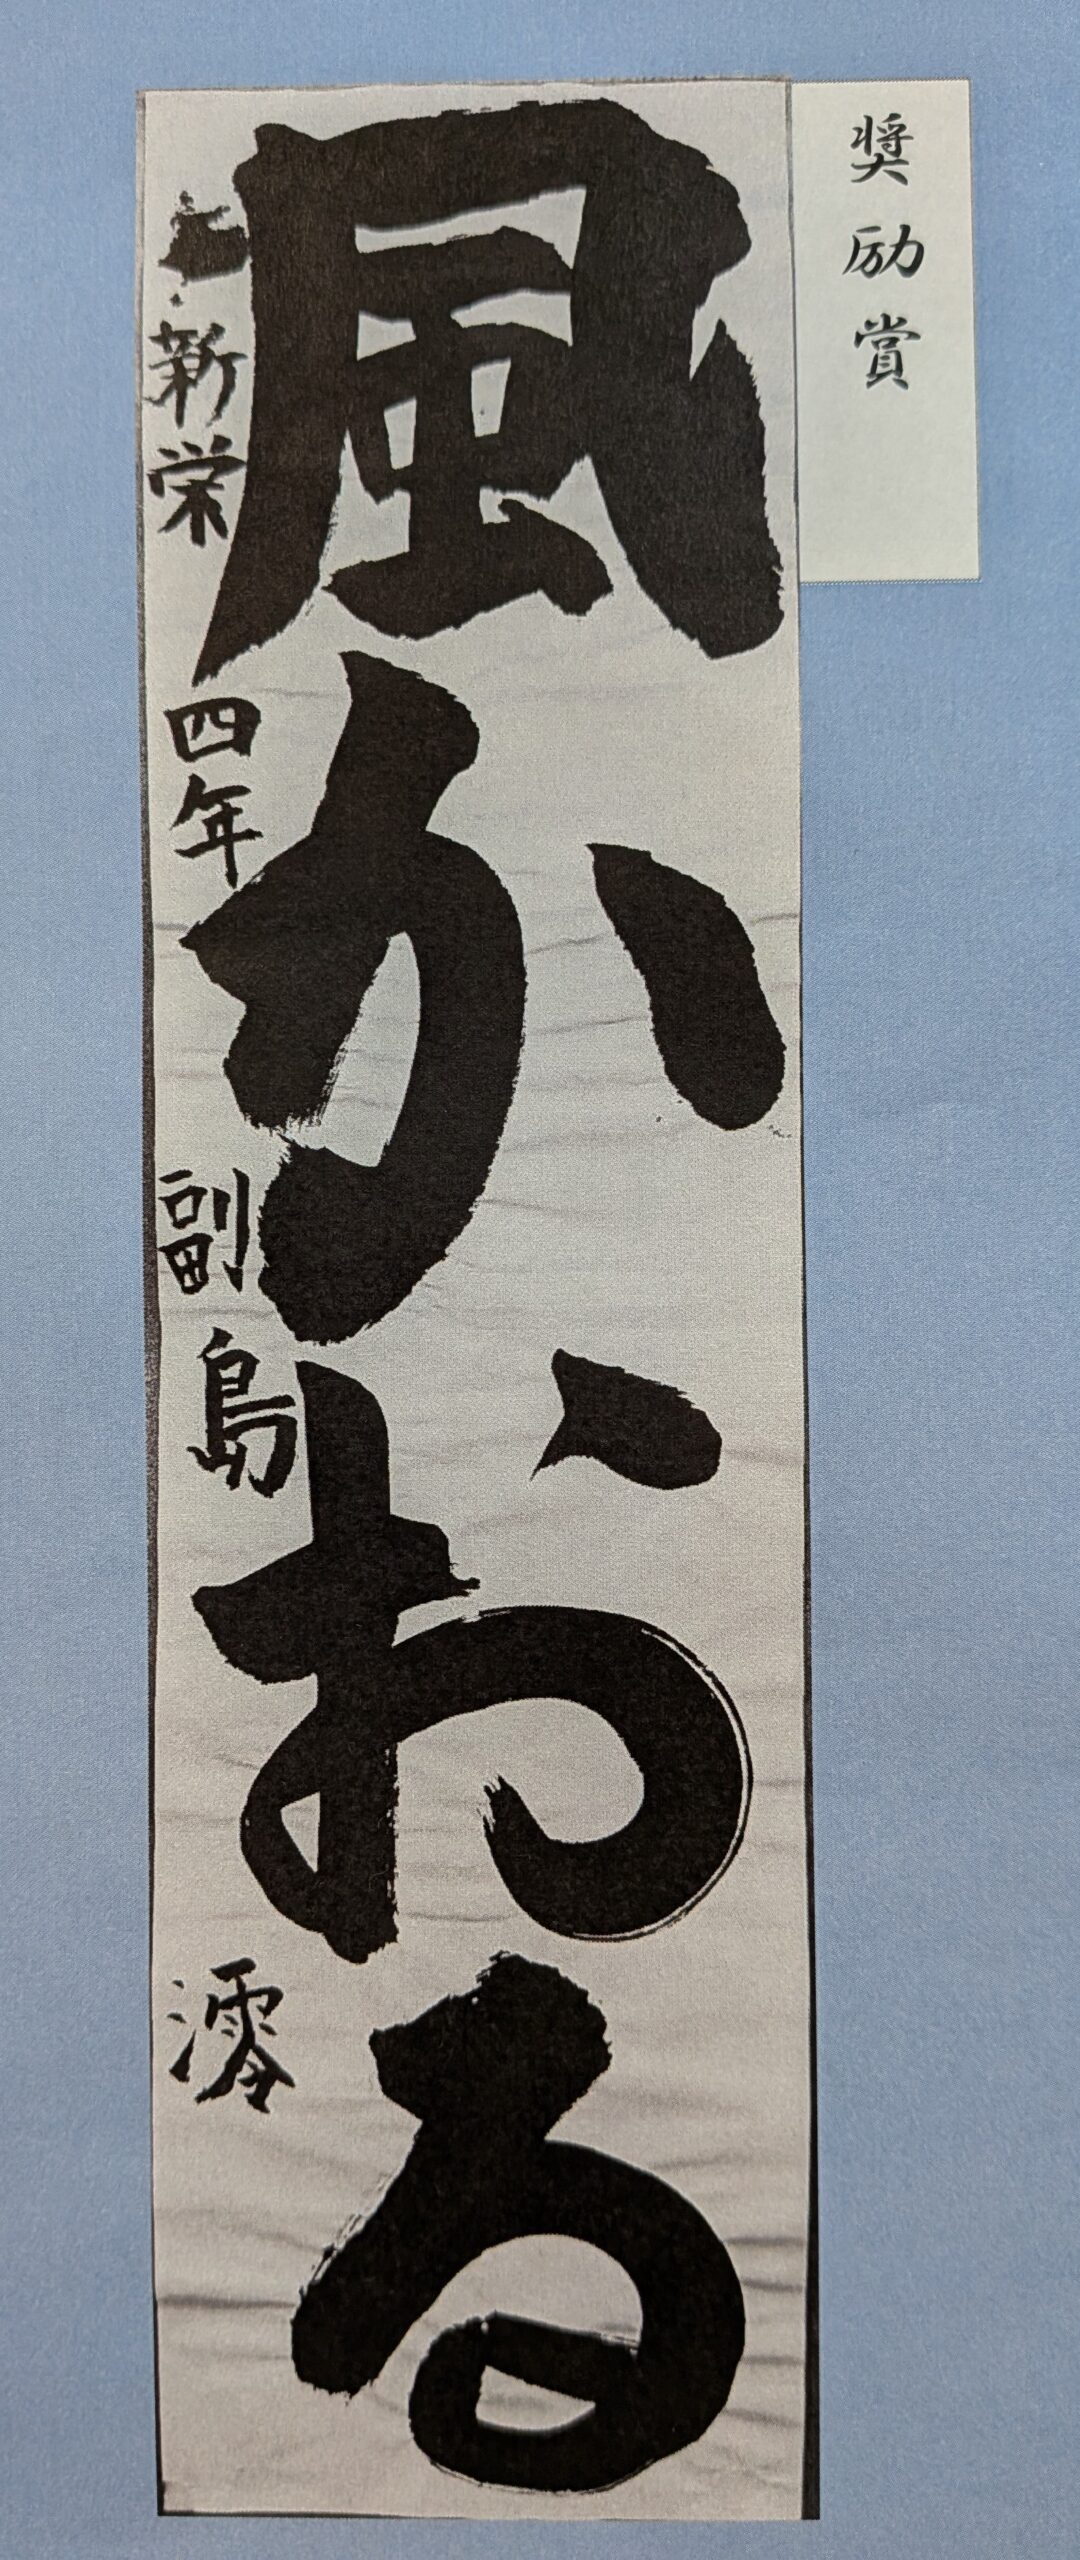 奨励賞
風かおる
新栄 四年 副島 澪